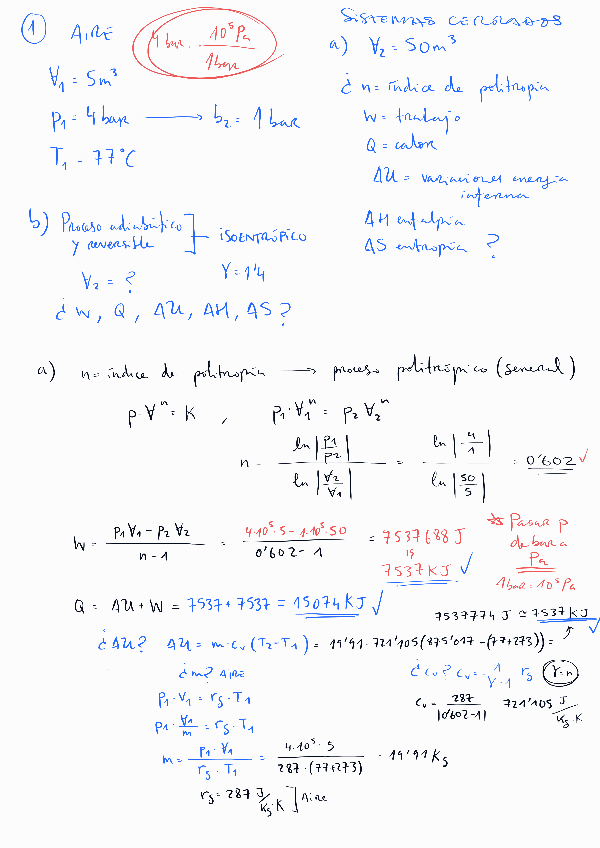 ① AIRE
4 bar · 10⁵ Pa / 1 bar
V₁ = 5 m³
p₁ = 4 bar ⟶ p₂ = 1 bar
T₁ = 77°C
SISTEMAS CERRADOS
a) V₂ = 50 m³
¿ n = índice de politropía
W = trabajo
Q = calor
ΔU = variaciones energía
interna
ΔH entalpía
ΔS entropía ?
b) Proceso adiabático
y reversible ] ISOENTRÓPICO
V₂ = ? γ = 1'4
¿ W, Q, ΔU, ΔH, ΔS ?
a) n = índice de politropía ⟶ proceso politrópico (general)
p·Vⁿ = K , p₁·V₁ⁿ = p₂ V₂ⁿ
n = ln |p₁/p₂| / ln |V₂/V₁| = ln |4/1| / ln |50/5| = 0'602 ✓
W = (p₁V₁ - p₂V₂) / (n - 1) = (4·10⁵·5 - 1·10⁵·50) / (0'602 - 1) = 7537688 J
7537 KJ ✓
* Pasar p
de bar a
Pa
1bar = 10⁵ Pa
Q = ΔU + W = 7537 + 7537 = 15074 KJ ✓
7537774 J ≃ 7537 KJ ✓
¿ΔU? ΔU = m·cᵥ (T₂ - T₁) = 19'91 · 721'105 (875'017 - (77+273)) =
¿m? AIRE
p₁·V₁ = rg·T₁
p₁·V₁/m = rg·T₁
m = p₁·V₁ / rg·T₁ = 4·10⁵·5 / 287·(77+273) = 19'91 Kg
rg = 287 J/Kg·K ] Aire
¿cᵥ? cᵥ = 1/(γ-1) rg (γ=n)
cᵥ = 287 / |0'602-1| 721'105 J/Kg K